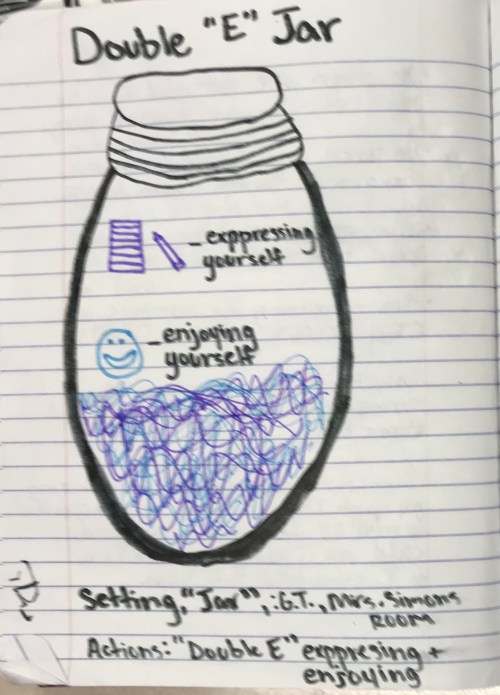 Double "E" Jar
- exppressing
yourself
- enjoying
yourself
Setting, "Jar", : G.T., Mrs. Simons
ROOM
Actions: "Double E" exppresing +
enjoying